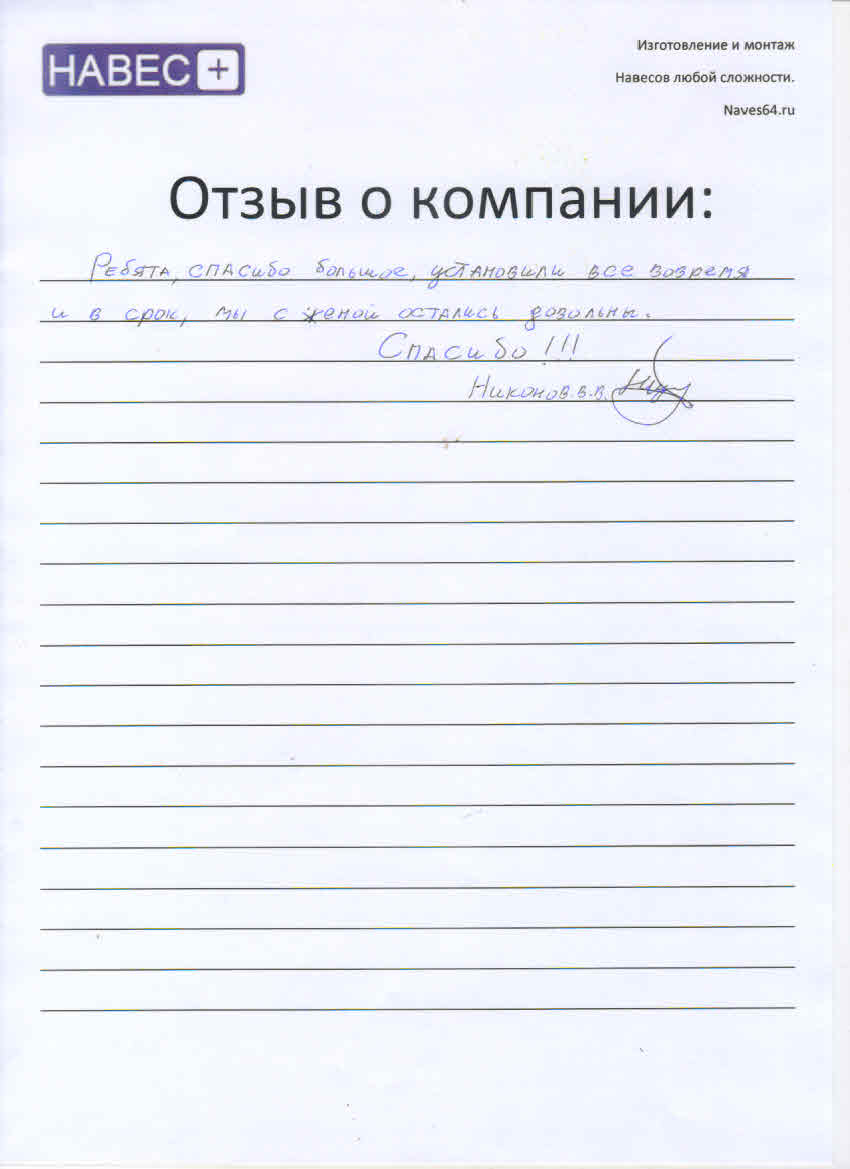 НАВЕС +
Изготовление и монтаж
Навесов любой сложности.
Naves64.ru
Отзыв о компании:
Ребята, спасибо большое, установили все вовремя
и в срок, мы с женой остались довольны.
Спасибо!!!
Никонов.В.В.